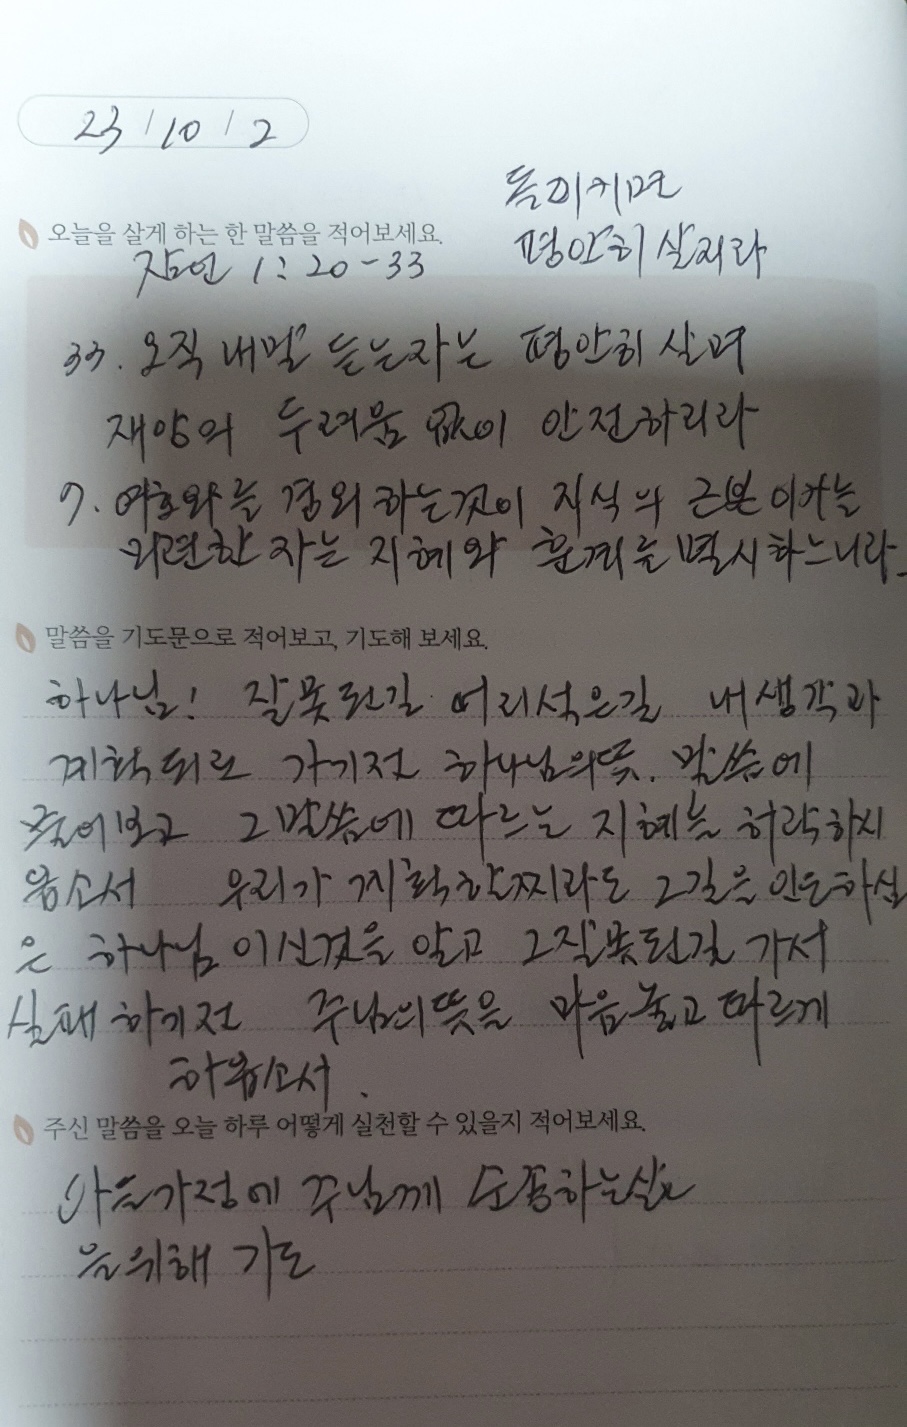 23 / 10 / 2
돌이키면
오늘을 살게 하는 한 말씀을 적어보세요.
평안히 살지라
잠언 1:20-33
33. 오직 내말 듣는자는 평안히 살며
재앙의 두려움 없이 안전하리라
7. 여호와를 경외하는것이 지식의 근본이거늘
미련한 자는 지혜와 훈계를 멸시하느니라.
말씀을 기도문으로 적어보고, 기도해 보세요.
하나님! 잘못된길 어리석은길 내생각과
계획되로 가기전 하나님의뜻. 말씀에
물어보고 그말씀에 따르는 지혜를 허락하시
옵소서 우리가 계획할찌라도 그길을 인도하심
은 하나님이신것을 알고 그잘못된길 가서
실패하기전 주님의뜻을 마음놓고 따르게
하옵소서.
주신 말씀을 오늘 하루 어떻게 실천할 수 있을지 적어보세요.
아들가정에 주님께 순종하는삶
을위해 기도